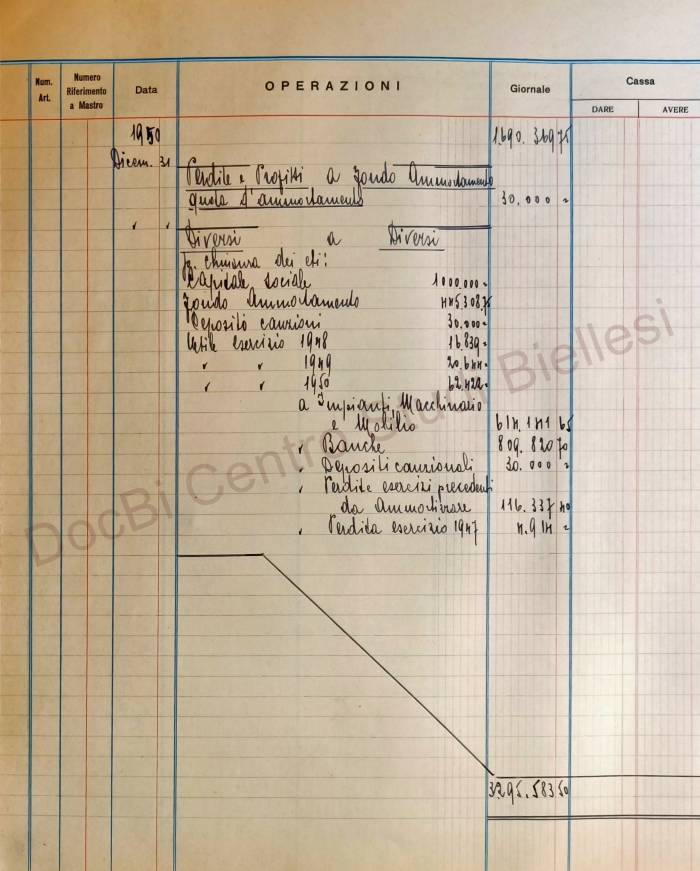 Num. Art.
Numero Riferimento a Mastro
Data
OPERAZIONI
Giornale
Cassa
DARE AVERE
1950 1.690.369 75
Dicem. 31 Perdite e Profitti a Fondo Ammortamento
quota d'ammortamento 30.000 =
" " Diversi a Diversi
p. chiusura dei cti:
Capitale sociale 1000.000=
Fondo Ammortamento 445308.75
Deposito cauzioni 30.000=
Utile esercizio 1948 16.839=
" " 1949 20.644=
" " 1950 62.422=
a Impianti, Macchinario
e Mobilio 614.141 65
" Banche 809.820 70
" Depositi cauzionali 30.000 =
" Perdite esercizi precedenti
da ammortizzare 116.337 40
" Perdita esercizio 1947 4.914 =
3.295.583 50
DocBi Centro Studi Biellesi